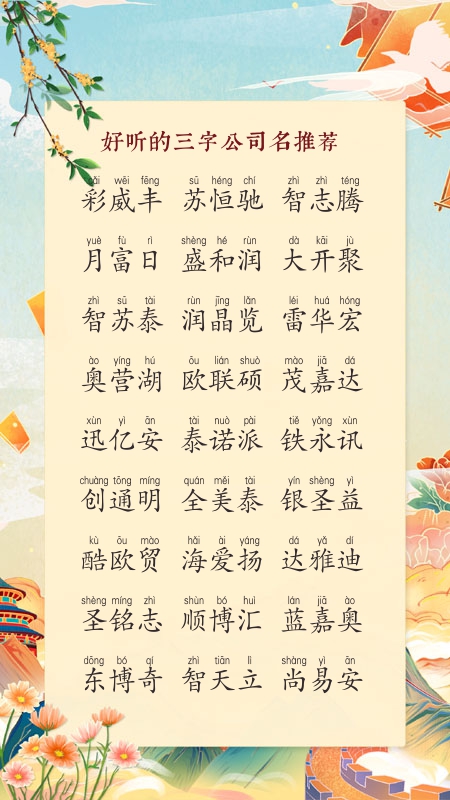 好听的三字公司名推荐
cǎi wēi fēng sū héng chí zhì zhì téng
彩威丰 苏恒驰 智志腾
yuè fù rì shèng hé rùn dà kāi jù
月富日 盛和润 大开聚
zhì sū tài rùn jīng lǎn léi huá hóng
智苏泰 润晶览 雷华宏
ào yíng hú ōu lián shuò mào jiā dá
奥营湖 欧联硕 茂嘉达
xùn yì ān tài nuò pài tiě yǒng xùn
迅亿安 泰诺派 铁永讯
chuàng tōng míng quán měi tài yín shèng yì
创通明 全美泰 银圣益
kù ōu mào hǎi ài yáng dá yǎ dí
酷欧贸 海爱扬 达雅迪
shèng míng zhì shùn bó huì lán jiā ào
圣铭志 顺博汇 蓝嘉奥
dōng bó qí zhì tiān lì shàng yì ān
东博奇 智天立 尚易安